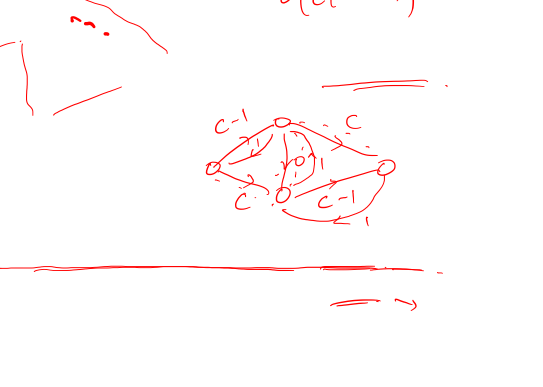 C-1
C
1
0
1
C
C-1
1